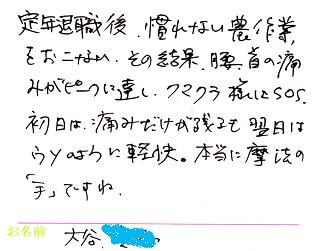 定年退職後、慣れない農作業
をおこない、その結果、腰、首の痛
みがピークに達し、クマクラ様にSOS.
初日は、痛みだけが残るも翌日は
ウソのように軽快。本当に摩法の
「手」ですね。
お名前
大谷